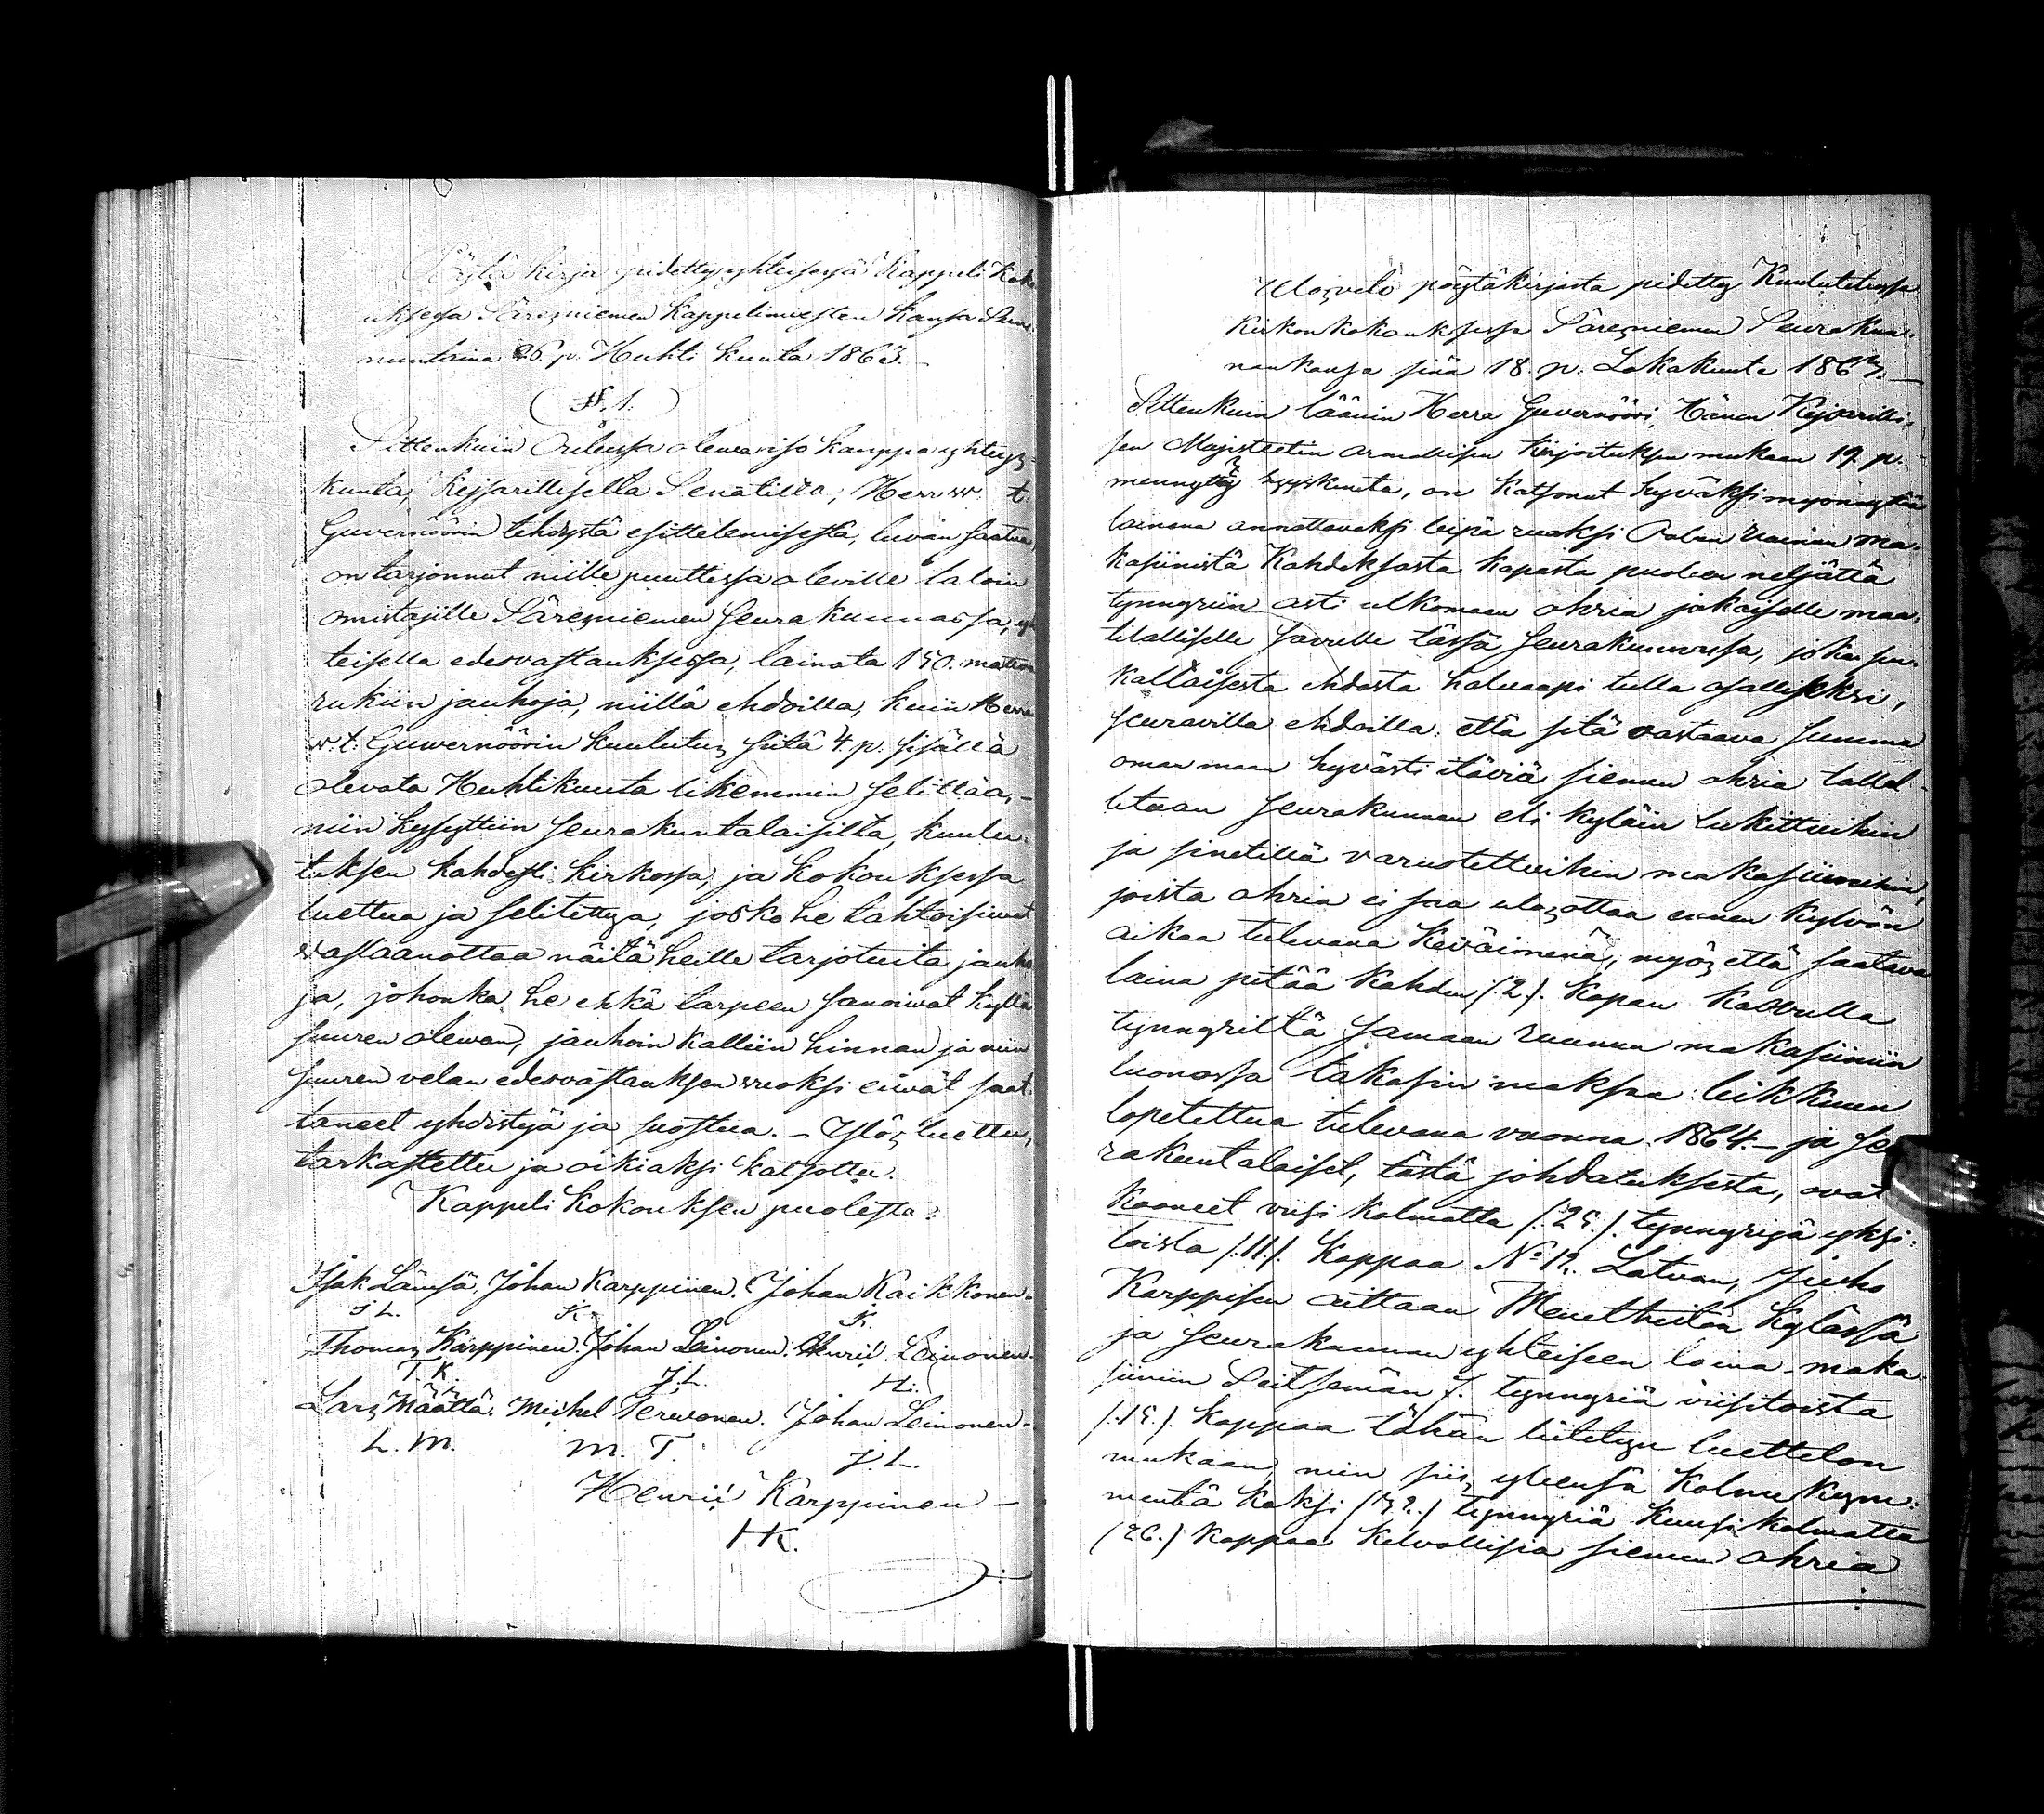 Pöytä kirja pidetty yhteisesä Kappeli Koko
uksessa Särezniemen Kappelimiesten kansa Sun
nuntaina 26 p. Huhti kuuta 1863.
(§. 1.)
Sittenkuin Oulussa olewa iso kauppa yhteyz-
kunta, Keisarillisella Senatilla, Herr w. t.
Guvernöörin tehdystä esittelemisestä, luvan saatua,
on tarjonnut niille puuttessa oleville taloin
omistajille Särezniemen seurakunnassa, yh
teisellä edesvastauksessa, lainata 150. mattoa
rukiin jauhoja, niillä ehdoilla, kuin Herra
w. t. Guwernöörin kuulutuz siitä 4. p. sisällä
olevata Huhtikuuta likemmin selittää, -
niin kysyttiin seurakuntalaisilta, kuulu-
tuksen kahdesti kirkossa, ja kokouksessa
luettua ja selitettyä, josko he tahtoisiwat
wastaanottaa näitä heille tarjotuita jauho
ja, johonka he ehkä tarpeen sanoiwat kyllä
suuren olewan, jauhoin kalliin hinnan ja niin
suuren velan edesvastauksen wuoksi eiwät saat
taneet yhdistyä ja suostua. - Ylöz luettu,
tarkastettu ja oikiaksi katsottu.
Kappeli kokouksen puolesta:
Isak Länsä. Johan Karppinen. Johan Kaikkonen.
I L. K. K.
Thomaz Karppinen. Johan Leinonen. Henrii Leinonen.
T. K. J. L. H:
Larz Määttä. Michel Terwonen. Johan Leinonen.
L. M. M. T. J. L.
Henrii Karppinen -
HK.
Uloz velo pöytäkirjasta pidetty Kuulutetussa
Kirkonkokouksessa Särezniemen Seurakun-
nan kansa sinä 18. p. Lokakuuta 1863. -
Sittenkuin läänin Herra Guvernööri, Hänen Kejsarilli-
sen Majesteetin armollisen Kirjoituksen mukaan 19 p.
mennyttä syyskuuta, on katsonut hyväksi myönnyttää
lainana annettavaksi leipä ruaksi Oulun ruunun ma-
kasiinistä Kahdeksasta kapasta puoleen neljättä
tynnyriin asti ulkomaan ohria jokaiselle maa-
tilalliselle savulle tässä seurakunnassa, joka sen-
kaltaisesta ehdosta haluaapi tulla osalliseksi,
seuravilla ehdoilla: että sitä vastaava summa
oman maan hyvästi itäviä siemen ohria tallel-
letaan seurakunnan eli kyläin lukittuihin
ja sinetillä varustettuihin makasiineihin,
joista ohria ei saa ulozottaa ennen kylvön
aikaa tulevana keväimenä, myöz että saatava
laina pitää kahden (:2.) kapan kasvulla
tynnyriltä samaan ruunun makasiiniin
luonossa takasin maksaa leikkuun
lopetettua tulevana vuonna 1864. - ja seu
rakuntalaiset, tästä johdatuksesta, ovat
kooneet viisi kolmatta (:25.) tynnyriä yksi-
toista (:11.) kappaa No 12. Latvan, Juho
Karppisen aittaan Meneteistön kylässä
ja seurakunnan yhteiseen laina-maka-
siiniin Seitsemän 7. tynnyriä viisitoista
(:15.) kappaa tähän liitetyn luettelon
mukaan, niin siiz yleensä kolmekym-
mentä kaksi (:32.) tynnyriä kuusikolmatta
(26.) kappaa kelvollisia siemen ohria